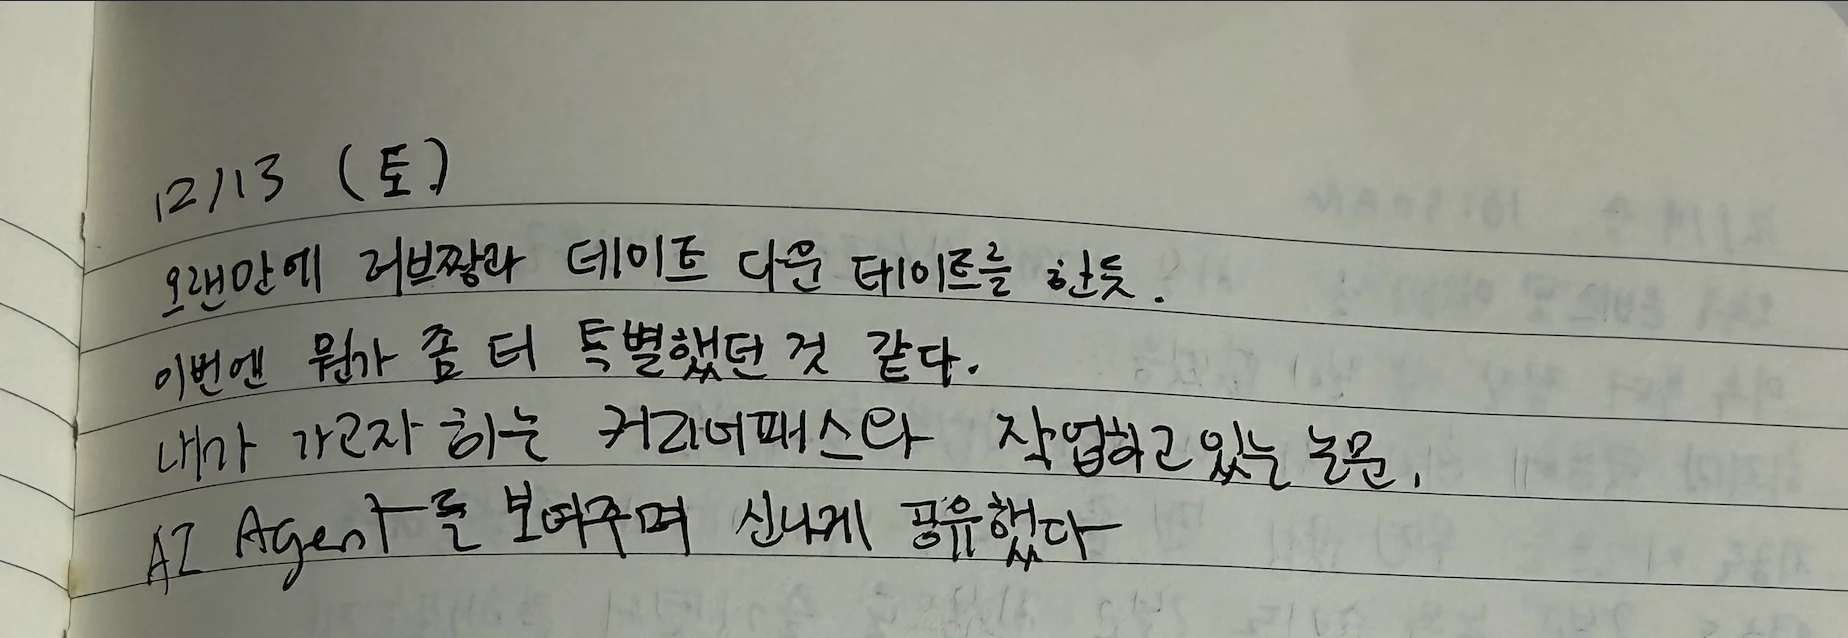 12/13 (토)
오랜만에 러브짱과 데이트 다운 데이트를 한듯.
이번엔 뭔가 좀 더 특별했던 것 같다.
내가 가고자 하는 커리어패스와 작업하고 있는 논문,
AI Agent를 보여주며 신나게 공유했다